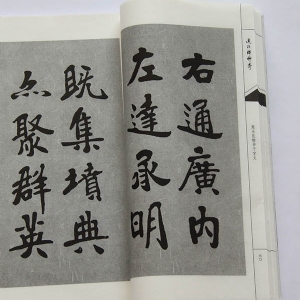 右通廣內
左達承明
既集墳典
亦聚群英